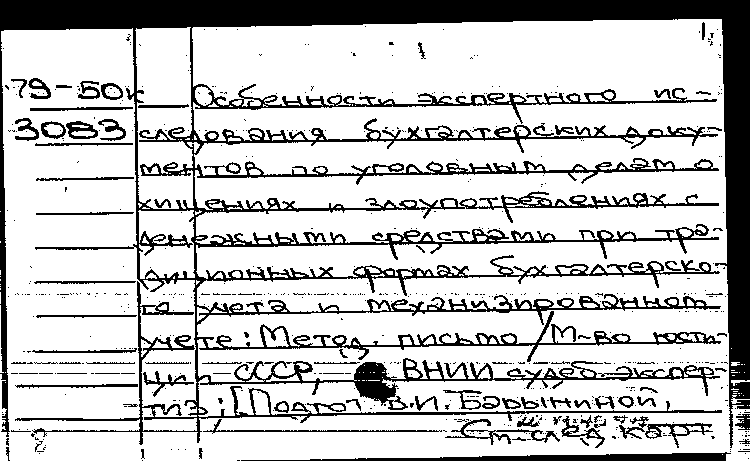 79-50к Особенности экспертного ис-
3083 следования бухгалтерских доку-
ментов по уголовным делам о
хищениях и злоупотреблениях с
денежными средствами при тра-
диционных формах бухгалтерско-
го учета и механизированном
учете: Метод. письмо / М-во юсти-
ции СССР, ВНИИ судеб. экспер-
тиз; [Подгот. В.И. Барыниной,
См. след. карт.